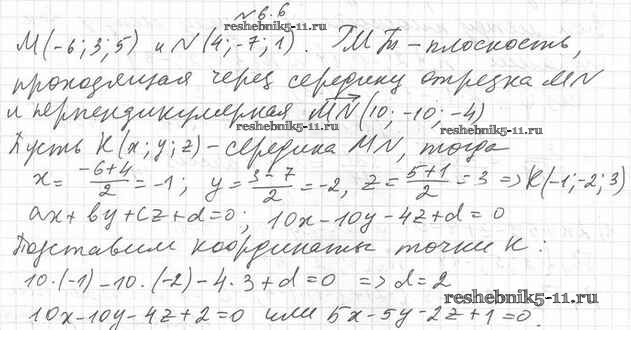 №6.6
reshebnik5-11.ru
M(-6; 3; 5) и N(4; -7; 1). ГМТ - плоскость,
проходящая через середину отрезка MN
reshebnik5-11.ru
и перпендикулярная MN(10; -10; -4)
reshebnik5-11.ru
Пусть K(x; y; z) - середина MN, тогда
x = (-6+4)/2 = -1; y = (3-7)/2 = -2, z = (5+1)/2 = 3 => K(-1; -2; 3)
ax + by + cz + d = 0; 10x - 10y - 4z + d = 0
Подставим координаты точки K:
10·(-1) - 10·(-2) - 4·3 + d = 0 => d = 2
reshebnik5-11.ru
10x - 10y - 4z + 2 = 0 или 5x - 5y - 2z + 1 = 0.